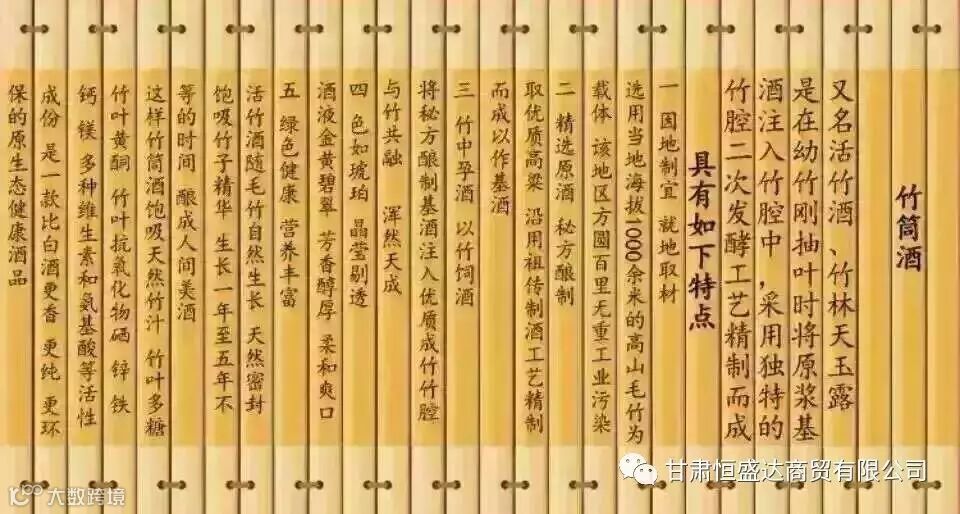 竹筒酒
又名活竹酒、竹林天玉露
是在幼竹刚抽叶时将原浆基
酒注入竹腔中,采用独特的
竹腔二次发酵工艺精制而成
具有如下特点
一 因地制宜 就地取材
选用当地海拔1000余米的高山毛竹为
载体 该地区方圆百里无重工业污染
二 精选原酒 秘方酿制
取优质高粱 沿用祖传制酒工艺精制
而成以作基酒
三 竹中孕酒 以竹饲酒
将秘方酿制基酒注入优质成竹竹腔
与竹共融 浑然天成
四 色如琥珀 晶莹剔透
酒液金黄碧翠 芳香醇厚 柔和爽口
五 绿色健康 营养丰富
活竹酒随毛竹自然生长 天然密封
饱吸竹子精华 生长一年至五年不
等的时间 酿成人间美酒
这样竹筒酒饱吸天然竹汁 竹叶多糖
竹叶黄酮 竹叶抗氧化物硒 锌 铁
钙 镁 多种维生素和氨基酸等活性
成份 是一款比白酒更香 更纯 更环
保的原生态健康酒品
甘肃恒盛达商贸有限公司
大数跨境